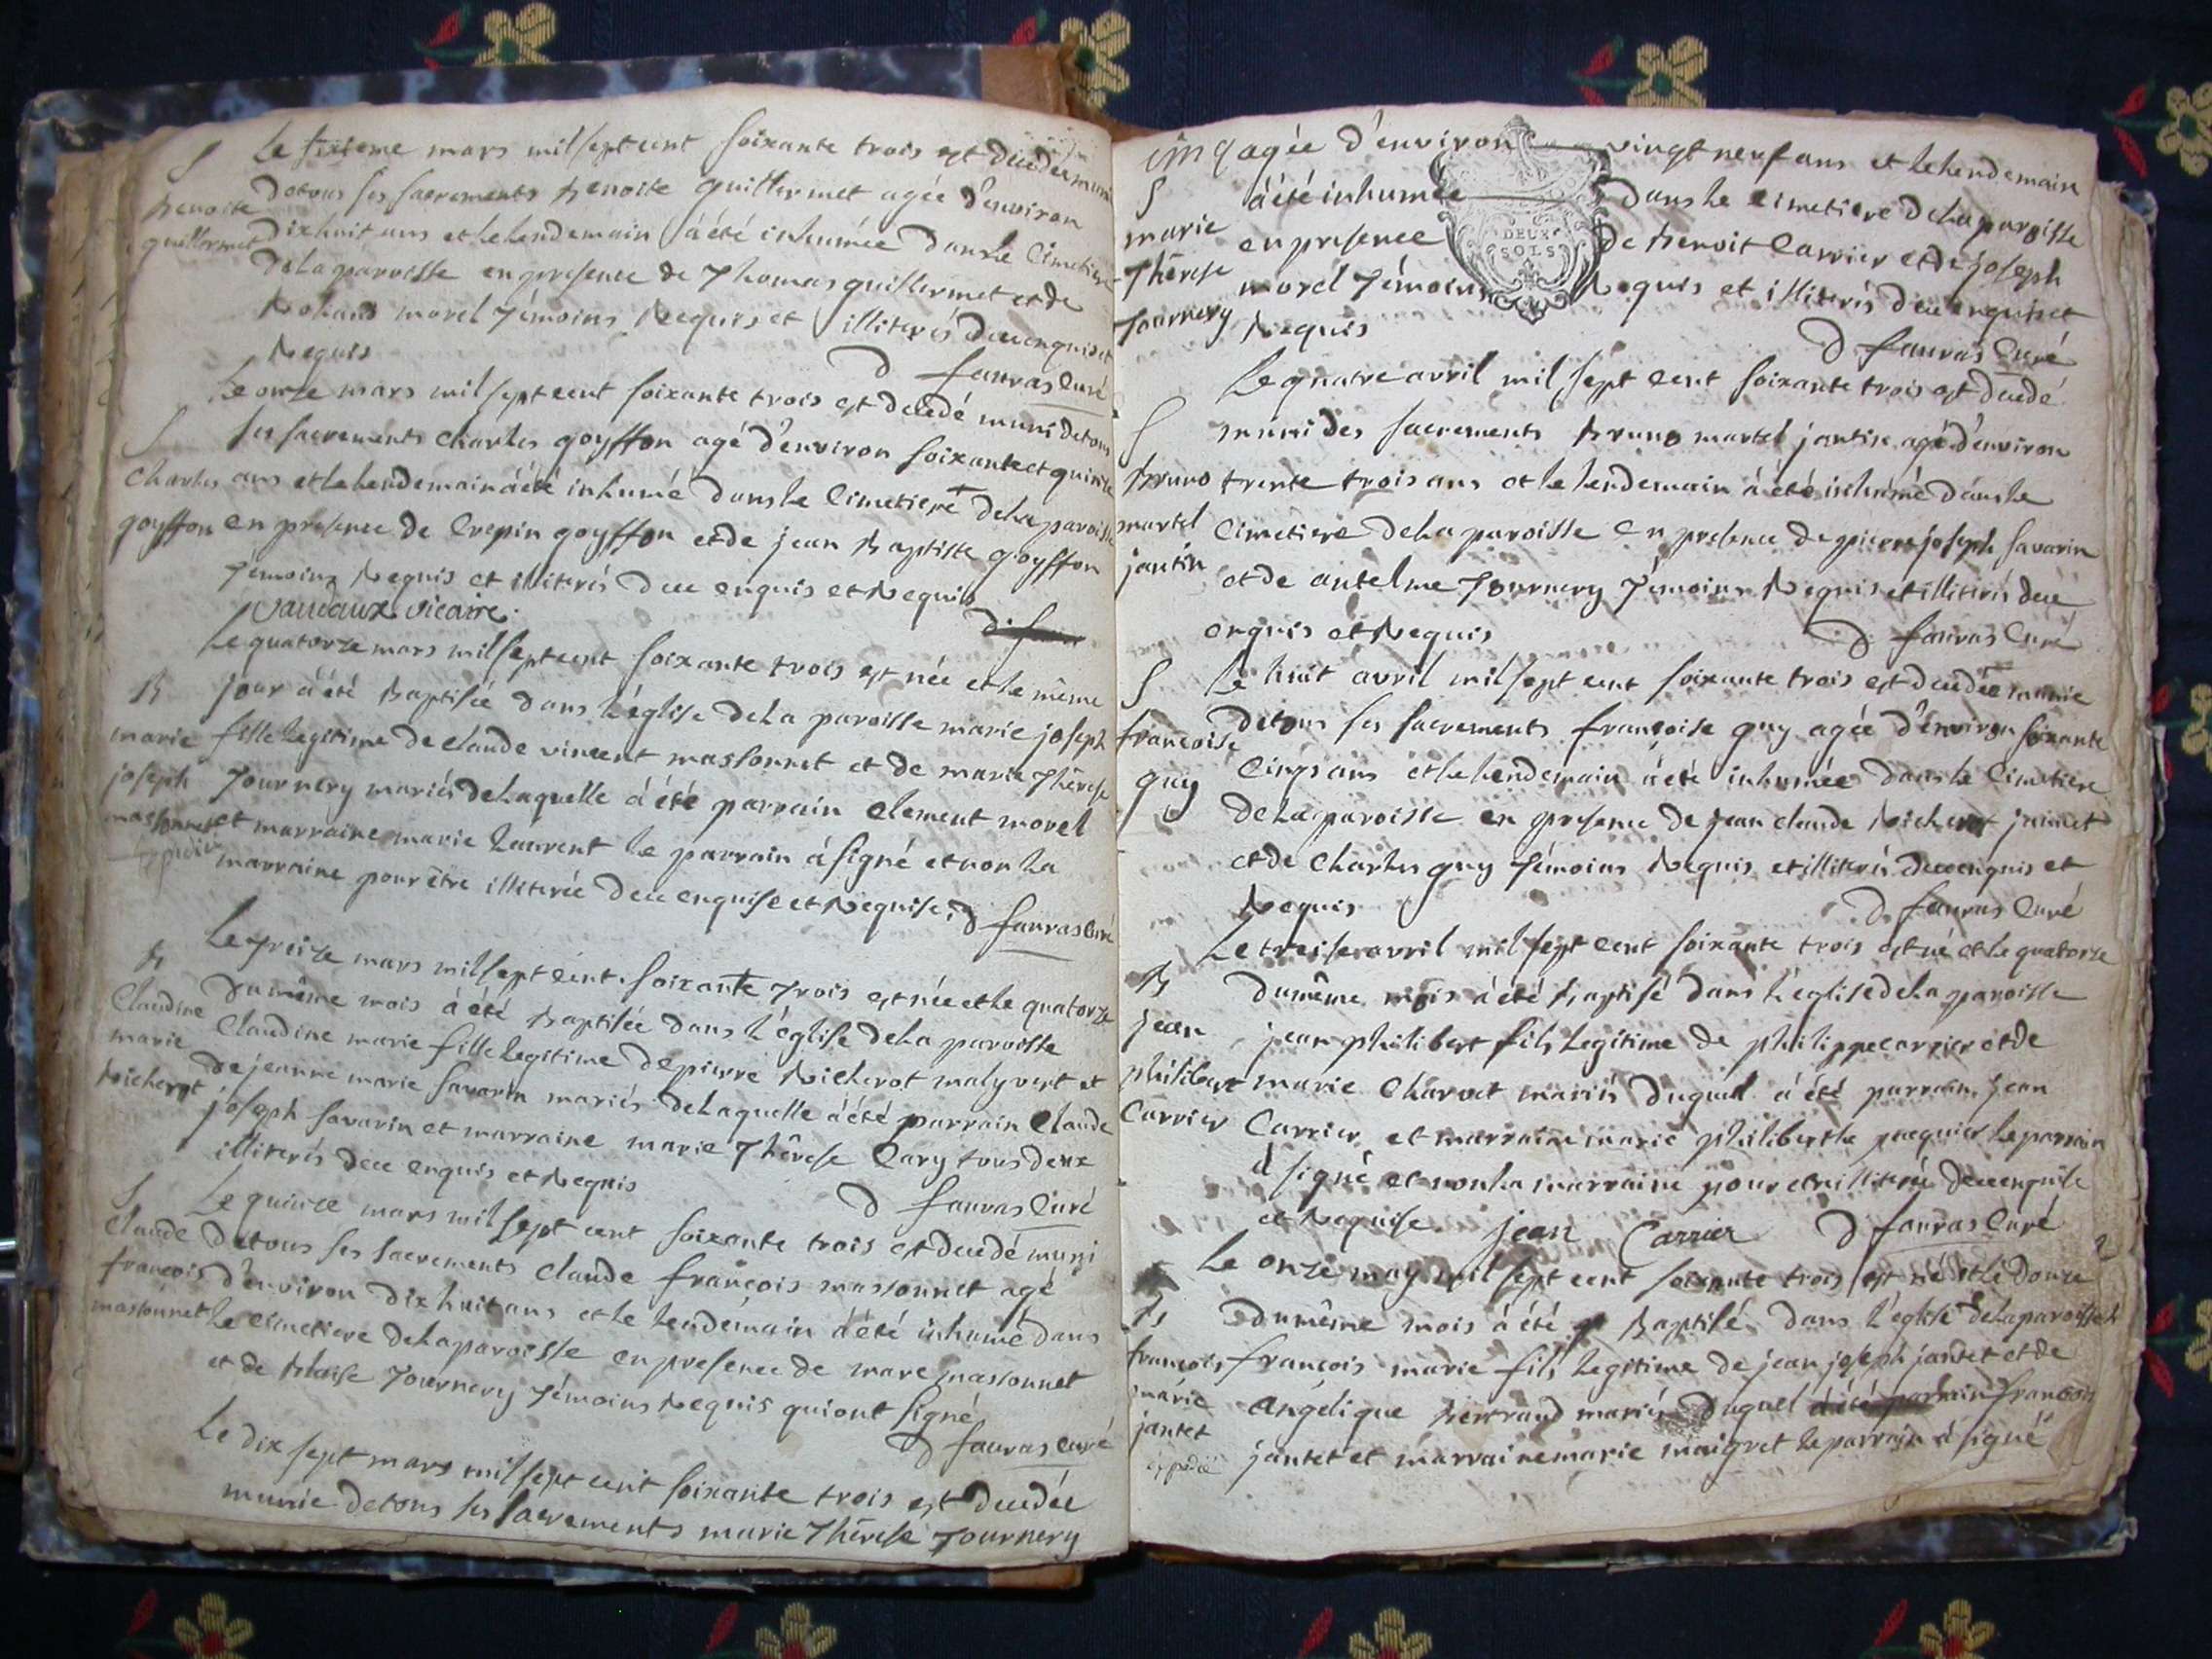 S
Benoite
guillermet
Le sixieme mars mil sept cent soixante trois est decedée munie
de tous ses sacrements Benoite guillermet agée d'environ
dix huit ans et le lendemain à été inhumée dans le Cimetiere
de la paroisse en presence de Thomas guillermet et de
Roland morel Témoins Requis et illiterés de ce enquis et
Requis
D favras Curé
S
Charles
goyffon
Le onze mars mil sept cent soixante trois est decedé muni de tous
ses sacrements Charles goyffon agé d'environ soixante et quinze
ans et le lendemain à été inhumé dans le Cimetiere de la paroisse
en presence de Crepin goyffon et de jean Baptiste goyffon
Témoins Requis et illiterés de ce enquis et Requis
Vaudaux vicaire
B
marie
joseph
massonnet
expedié
Le quatorze mars mil sept cent soixante trois est née et le même
jour à été Baptisée dans L'église de La paroisse marie joseph
fille Legitime de claude vincent massonnet et de marie Thérese
Tournery mariés de Laquelle à été parrain clement morel
et marraine marie Laurent le parrain à signé et non La
marraine pour être illiterée de ce enquise et Requise
D favras Curé
B
Claudine
marie
Richerot
Le Treize mars mil sept cent soixante Trois est née et le quatorze
du même mois à été Baptisée dans L'église de La paroisse
Claudine marie fille Legitime de pierre Richerot malyvert et
de jeanne marie savarin mariés de Laquelle à été parrain Claude
joseph savarin et marraine marie Thérese Cary tous deux
illiterés de ce enquis et Requis
D favras Curé
S
Claude
francois
massonnet
Le quinze mars mil sept cent soixante trois est decedé muni
de tous ses sacrements claude françois massonnet agé
d'environ dix huit ans et le lendemain à été inhumé dans
le cimetiere de La paroisse en presence de marc massonnet
et de Blaise Tournery Témoins Requis qui ont signé
D favras curé
Le dix sept mars mil sept cent soixante trois est decedée
munie de tous ses sacrements marie Thérese Tournery
cinq
DEUX
SOLS
S
marie
Thérese
Tournery
agée d'environ vingt neuf ans et le lendemain
à été inhumée dans le cimetiere de La paroisse
en presence de Benoit Carrier et de joseph
morel Témoins Requis et illiterés de ce enquis et
Requis
D favras Curé
S
Bruno
martel
jantin
Le quatre avril mil sept cent soixante trois est decedé
muni des sacrements Bruno martel jantin agé d'environ
trente trois ans et le lendemain à été inhumé dans le
Cimetiere de La paroisse en presence de pierre joseph savarin
et de antelme Tournery Témoins Requis et illiterés de ce
enquis et Requis
D favras Curé
S
francoise
guy
Le huit avril mil sept cent soixante trois est decedée munie
de tous ses sacrements françoise guy agée d'environ soixante
Cinq ans et le lendemain à été inhumée dans le Cimetiere
de La paroisse en presence de jean claude Richerot jaimet
et de Charles guy Témoins Requis et illiterés de ce enquis et
Requis
D favras Curé
B
jean
philibert
Carrier
Le treise avril mil sept cent soixante trois est né et le quatorze
du même mois à été Baptisé dans L'église de La paroisse
jean philibert fils Legitime de philippe carrier et de
marie Charvet mariés duquel à été parrain jean
Carrier et marraine marie philiberthe pacquier le parrain
à signé et non La marraine pour être illiterée de ce enquise
et Requise
jean Carrier
D favras Curé
B
francois
marie
jantet
expedié
Le onze may mil sept cent soixante trois est né et le Douze
du même mois à été Baptisé dans L'église de La paroisse
françois marie fils Legitime de jean joseph jantet et de
Angélique Bertrand mariés Duquel à été parrain francois
jantet et marraine marie maigret le parrain à signé